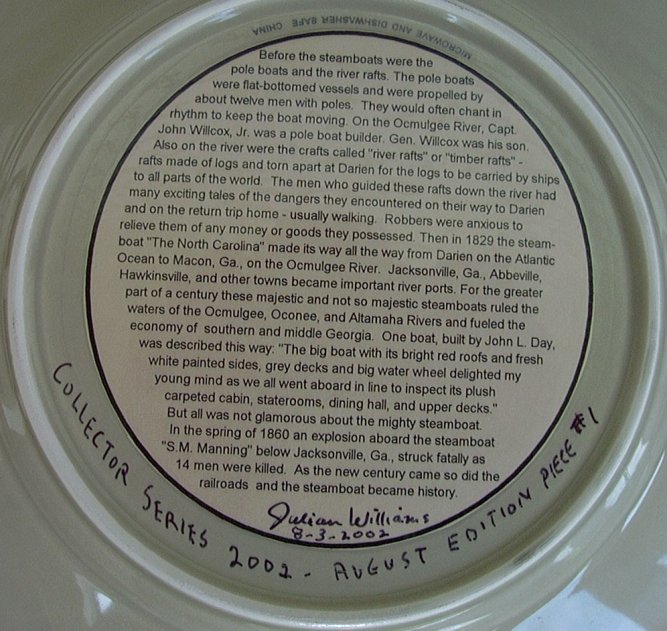 MICROWAVE AND DISHWASHER SAFE CHINA
Before the steamboats were the
pole boats and the river rafts. The pole boats
were flat-bottomed vessels and were propelled by
about twelve men with poles. They would often chant in
rhythm to keep the boat moving. On the Ocmulgee River, Capt.
John Willcox, Jr. was a pole boat builder. Gen. Willcox was his son.
Also on the river were the crafts called "river rafts" or "timber rafts" -
rafts made of logs and torn apart at Darien for the logs to be carried by ships
to all parts of the world. The men who guided these rafts down the river had
many exciting tales of the dangers they encountered on their way to Darien
and on the return trip home - usually walking. Robbers were anxious to
relieve them of any money or goods they possessed. Then in 1829 the steam-
boat "The North Carolina" made its way all the way from Darien on the Atlantic
Ocean to Macon, Ga., on the Ocmulgee River. Jacksonville, Ga., Abbeville,
Hawkinsville, and other towns became important river ports. For the greater
part of a century these majestic and not so majestic steamboats ruled the
waters of the Ocmulgee, Oconee, and Altamaha Rivers and fueled the
economy of southern and middle Georgia. One boat, built by John L. Day,
was described this way: "The big boat with its bright red roofs and fresh
white painted sides, grey decks and big water wheel delighted my
young mind as we all went aboard in line to inspect its plush
carpeted cabin, staterooms, dining hall, and upper decks."
But all was not glamorous about the mighty steamboat.
In the spring of 1860 an explosion aboard the steamboat
"S.M. Manning" below Jacksonville, Ga., struck fatally as
14 men were killed. As the new century came so did the
railroads and the steamboat became history.
Julian Williams
8-3-2002
COLLECTOR SERIES 2002 - AUGUST EDITION PIECE #1